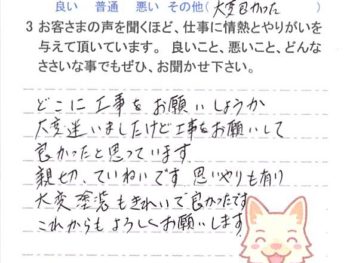 良い 普通 悪い その他(大変良かった
3 お客さまの声を聞くほど、仕事に情熱とやりがいを
与えて頂いています。 良いこと、悪いこと、どんな
ささいな事でもぜひ、お聞かせ下さい。
どこに工事をお願いしようか
大変迷いましたけど工事をお願いして
良かったと思っています
親切、ていねいです 思いやりも有り
大変塗装もきれいで良かったです
これからもよろしくお願いします